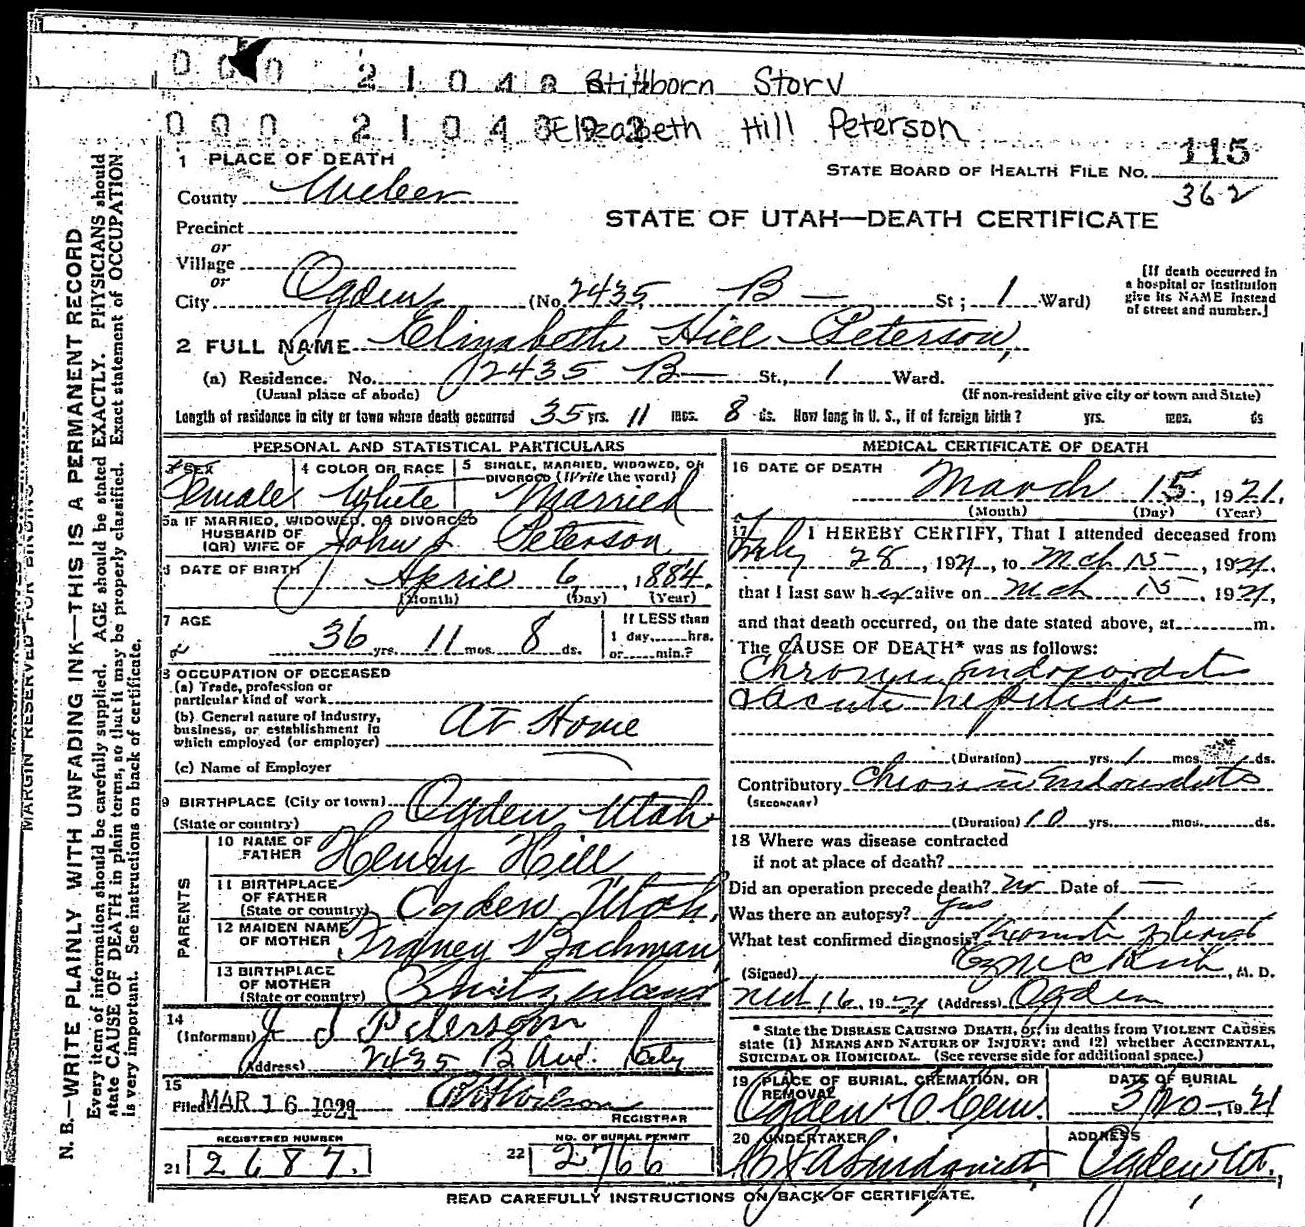 0 0 0 2 1 0 4 8 Stillborn Story
0 0 0 2 1 0 4 8 Elizabeth Hill Peterson
1 PLACE OF DEATH
STATE BOARD OF HEALTH FILE No. 115
County Weber
362
STATE OF UTAH—DEATH CERTIFICATE
Precinct
or
Village
or
City Ogden (No. 2435 B — St; 1 Ward)
[If death occurred in
a hospital or institution
give its NAME instead
of street and number.]
2 FULL NAME Elizabeth Hill Peterson,
(a) Residence. No. 2435 B — St., 1 Ward.
(Usual place of abode)
(If non-resident give city or town and State)
Length of residence in city or town where death occurred 35 yrs. 11 mos. 8 ds. How long in U. S., if of foreign birth? yrs. mos. ds
PERSONAL AND STATISTICAL PARTICULARS
3 SEX Female
4 COLOR OR RACE White
5 SINGLE, MARRIED, WIDOWED, OR
DIVORCED (Write the word)
Married
5a IF MARRIED, WIDOWED, OR DIVORCED
HUSBAND OF
(OR) WIFE OF John S Peterson
6 DATE OF BIRTH April 6, 1884.
(Month) (Day) (Year)
7 AGE
36 yrs. 11 mos. 8 ds.
If LESS than
1 day, hrs.
or min.?
8 OCCUPATION OF DECEASED
(a) Trade, profession or
particular kind of work
(b) General nature of industry,
business, or establishment in
which employed (or employer)
At Home
(c) Name of Employer
9 BIRTHPLACE (City or town) Ogden Utah
(State or country)
PARENTS
10 NAME OF
FATHER Henry Hill
11 BIRTHPLACE
OF FATHER
(State or country) Ogden, Utah,
12 MAIDEN NAME
OF MOTHER Bachman
13 BIRTHPLACE
OF MOTHER
(State or country)
14
(Informant) J S Peterson
(Address) 2435 B Ave. City
15
Filed MAR 16 1921 Wilson
REGISTRAR
REGISTERED NUMBER
21 2687.
NO. OF BURIAL PERMIT
22 2766
MEDICAL CERTIFICATE OF DEATH
16 DATE OF DEATH
March 15, 1921.
(Month) (Day) (Year)
17 I HEREBY CERTIFY, That I attended deceased from
28, 1921, to Mch 15, 1921,
that I last saw her alive on Mch 15, 1921,
and that death occurred, on the date stated above, at m.
The CAUSE OF DEATH* was as follows:
Chronic
acute
(Duration) yrs. 1 mos. ds.
Contributory Chronic Endocarditis
(SECONDARY)
(Duration) 10 yrs. mos. ds.
18 Where was disease contracted
if not at place of death?
Did an operation precede death? No Date of —
Was there an autopsy? Yes
What test confirmed diagnosis?
(Signed) , M. D.
Mch 16, 1921 (Address) Ogden
* State the DISEASE CAUSING DEATH, or, in deaths from VIOLENT CAUSES
state (1) MEANS AND NATURE OF INJURY; and (2) whether ACCIDENTAL,
SUICIDAL OR HOMICIDAL. (See reverse side for additional space.)
19 PLACE OF BURIAL, CREMATION, OR
REMOVAL
Ogden C Cem.
DATE OF BURIAL
3/20 —, 1921
20 UNDERTAKER
Lindquist
ADDRESS
Ogden Ut.,
READ CAREFULLY INSTRUCTIONS ON BACK OF CERTIFICATE.
MARGIN RESERVED FOR BINDING
N. B.—WRITE PLAINLY WITH UNFADING INK—THIS IS A PERMANENT RECORD
Every item of information should be carefully supplied. AGE should be stated EXACTLY. PHYSICIANS should
state CAUSE OF DEATH in plain terms, so that it may be properly classified. Exact statement of OCCUPATION
is very important. See instructions on back of certificate.